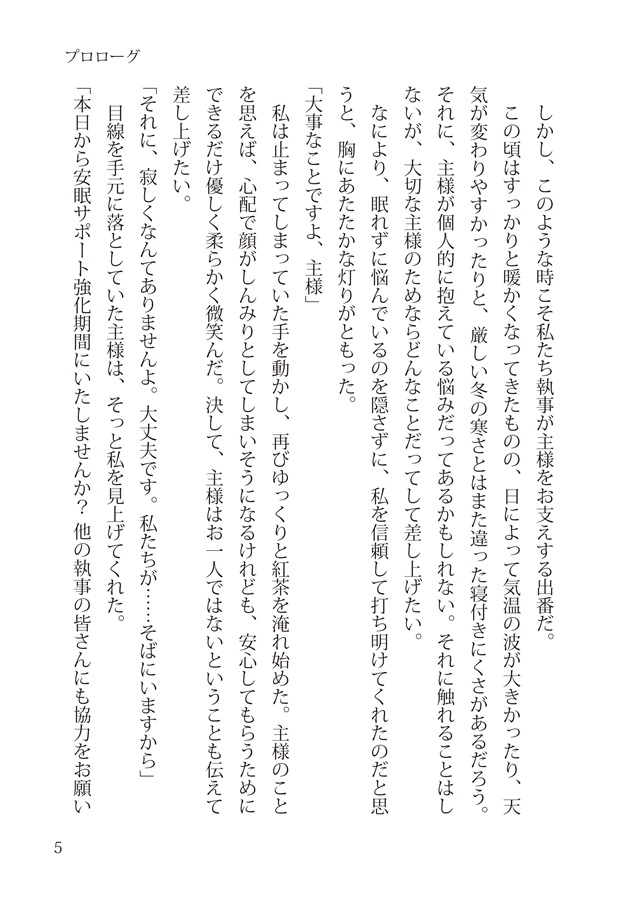 プロローグ
しかし、このような時こそ私たち執事が主様をお支えする出番だ。
この頃はすっかりと暖かくなってきたものの、日によって気温の波が大きかったり、天
気が変わりやすかったりと、厳しい冬の寒さとはまた違った寝付きにくさがあるだろう。
それに、主様が個人的に抱えている悩みだってあるかもしれない。それに触れることはし
ないが、大切な主様のためならどんなことだってして差し上げたい。
なにより、眠れずに悩んでいるのを隠さずに、私を信頼して打ち明けてくれたのだと思
うと、胸にあたたかな灯りがともった。
「大事なことですよ、主様」
私は止まってしまっていた手を動かし、再びゆっくりと紅茶を淹れ始めた。主様のこと
を思えば、心配で顔がしんみりとしてしまいそうになるけれども、安心してもらうために
できるだけ優しく柔らかく微笑んだ。決して、主様はお一人ではないということも伝えて
差し上げたい。
「それに、寂しくなんてありませんよ。大丈夫です。私たちが……そばにいますから」
目線を手元に落としていた主様は、そっと私を見上げてくれた。
「本日から安眠サポート強化期間にいたしませんか？ 他の執事の皆さんにも協力をお願い
5